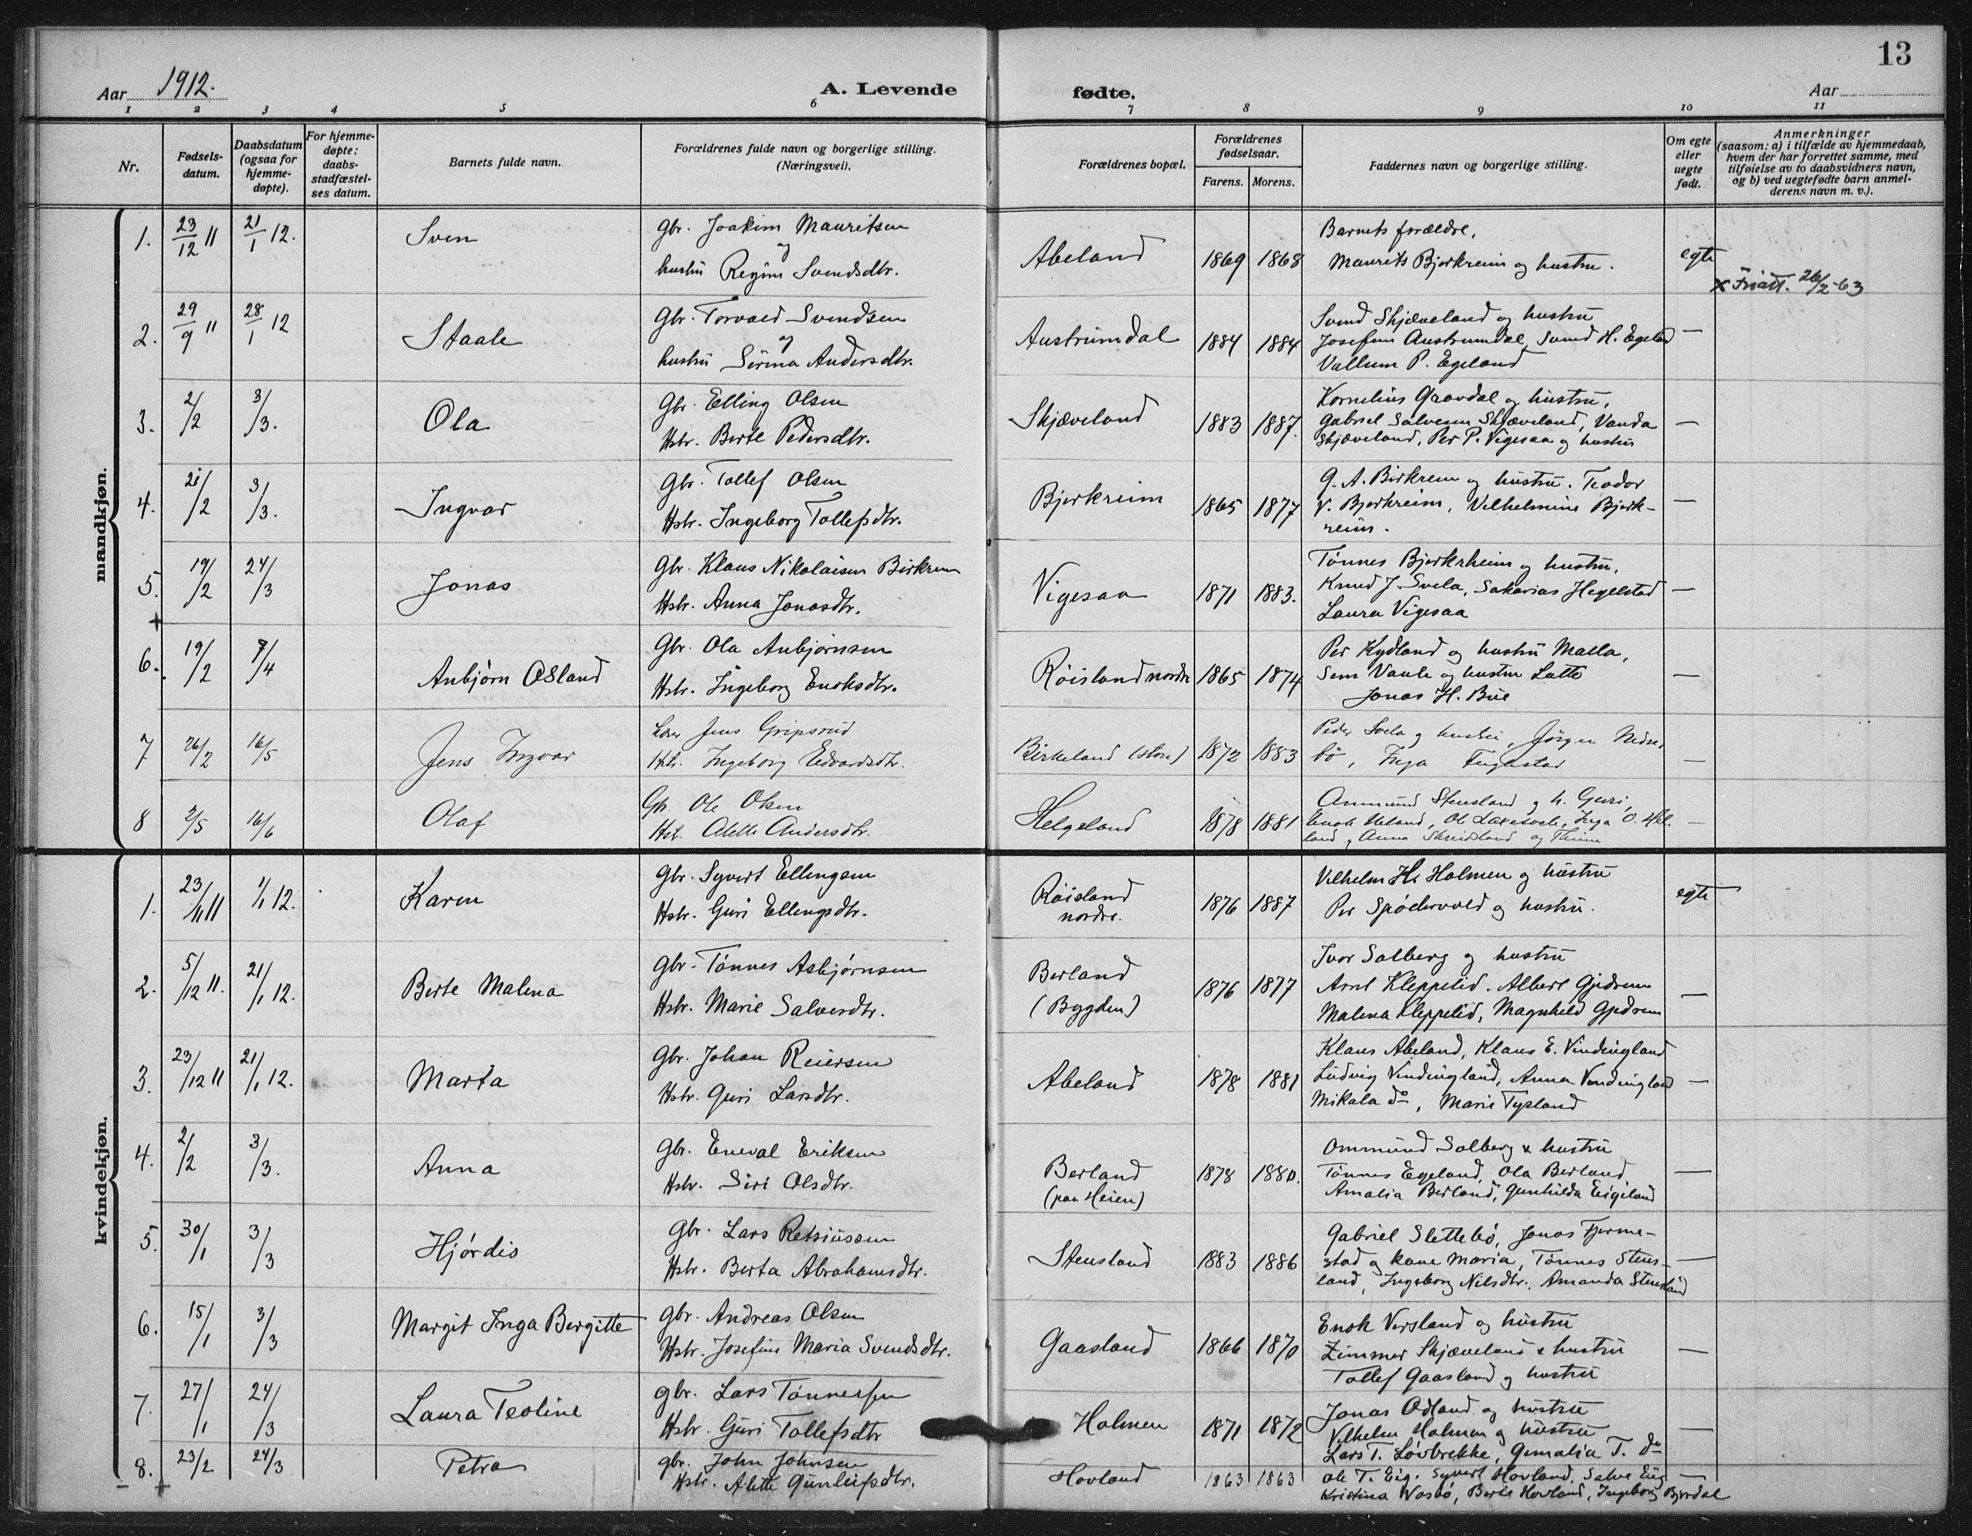 13
Aar 1912. A. Levende fødte. Aar
1 2 3 4 5 6 7 8 9 10 11
Nr.
Fødsels-
datum.
Daabsdatum
(ogsaa for
hjemme-
døpte).
For hjemme-
døpte:
daabs-
stadfæstel-
ses datum.
Barnets fulde navn.
Forældrenes fulde navn og borgerlige stilling.
(Næringsvei).
Forældrenes bopæl.
Forældrenes
fødselsaar.
Farens. Morens.
Faddernes navn og borgerlige stilling.
Om egte
eller
uegte
født.
Anmerkninger
(saasom: a) i tilfælde av hjemmedaab,
hvem der har forrettet samme, med
tilføielse av to daabsvidners navn,
og b) ved uegtefødte barn anmel-
derens navn m. v.).
mandkjøn.
1. 23/12 11 21/1 12. Sven
Gbr. Joakim Mauritsen
og
hustru Regine Svendsdtr.
Abeland 1869 1868
Barnets forældre,
Maurits Bjerkreim og hustru.
egte
2. 29/9 11 28/1 12 Staale
Gbr. Torvald Svendsen
og
hustru Serina Andersdtr.
Austrumdal 1884 1884
Svend Skjæveland og hustru
Josefine Austrumdal, Svend H. Egelad
Vallum P. Egeland
—
26/2-63
3. 2/2 3/3. Ola
Gbr. Elling Olsen
Hstr. Berte Pedersdtr.
Skjæveland 1883 1887.
Kornelius Gravdal og hustru,
Gabriel Salvesen Skjæveland, Vanda
Skjæveland, Per P. Vigesaa og hustru
—
4. 21/2 3/3. Ingvar
Gbr. Tollef Olsen
Hstr. Ingeborg Tollefsdtr.
Bjerkreim 1865 1877
G. A. Birkrem og hustru. Teodor
V. Bjerkreim, Vilhelmine Bjerk-
reim.
—
5. 19/2 24/3 Jonas
Gbr. Klaus Nikolaisen Birkrem
Hstr. Anna Jonasdtr.
Vigesaa 1871 1883.
Tønnes Bjerkrheim og hustru,
Knud J. Svela, Sakarias Hegelstad
Laura Vigesaa
—
+
6. 19/2 7/4 Anbjørn Osland
Gbr. Ola Anbjørnsen
Hstr. Ingeborg Enoksdtr.
Røisland nordre 1865 1874
Per Kydland og hustru Malla,
Sem Vaule og hustru Lotte
Jonas H. Bue
—
7 26/2 16/5 Jens Ingvar
Lærer Jens Gripsrud
Hstr. Ingeborg Edvardsdtr.
Birkeland (store) 1872 1883
Peder Svela og hustru, Jørgen Nedre-
bø, Inga Fuglestad
—
8 2/5 16/6 Olaf
Gbr. Ole Olsen
Hst. Alette Andersdtr.
Helgeland 1878 1881
Ommund Stensland og h. Guri,
—
kvindekjøn.
1. 23/11 11 1/1 12. Karen
Gbr. Syvert Ellingsen
Hstr. Guri Ellingsdtr.
Røisland
nordre.
1876 1887
Vilhelm H. Holmen og hustru
Per Spødervold og hustru.
egte
2. 5/12 11. 21/1 12. Berte Malena
Gbr. Tønnes Asbjørnsen
Hstr. Marie Salvesdtr.
Berland
(Bygden)
1876 1877
Ivar Solberg og hustru
Arnt Kleppelid. Albert Gjedrem
Malena Kleppelid, Magnhild Gjedrem
—
3. 23/12 11 21/1 12. Marta
Gbr. Johan Reiersen
Hstr. Guri Larsdtr.
Abeland 1878 1881
Klaus Abeland, Klaus E. Vindingland
Ludvig Vindingland, Anna Vindingland
Mikala do, Marie Tysland
—
4. 2/2 3/3. Anna
Gbr. Eneval Eriksen
Hstr. Siri Olsdtr.
Berland
(paa Heien)
1878 1880.
Ommund Solberg & hustru
Tønnes Egeland, Ola Berland,
Amalia Berland, Gunhilda Eigeland
—
5. 30/1 3/3 Hjørdis
Gbr. Lars Retsiussen
Hstr. Berta Abrahamsdtr.
Stensland 1883 1886
Gabriel Slettebø, Jonas Fjerme-
stad og kone Maria, Tønnes Stens-
land, Ingeborg Nilsdtr. Amanda Stensland
—
6. 15/1 3/3 Margit Inga Bergitte
Gbr. Andreas Olsen
Hstr. Josefine Maria Svendsdtr.
Gaasland 1866 1870
Enok Versland og hustru
Zimmer Skjæveland & hustru
Tollef Gaasland og hustru
—
7. 27/1 24/3 Laura Teoline
gbr. Lars Tønnessen
Hstr. Guri Tollefsdtr
Holmen 1871 1872
Jonas Odland og hustru
Vilhelm Holmen og hustru
Lars T. Løvbrekke, Gemalia T. do
—
8. 23/2 24/3 Petra
gbr. John Johnsen
Hstr. Alette Gunleifsdtr.
Hovland 1863 1863
Ole T. Eig. Syvert Hovland, Salve Eig
Kristina Wasbø, Berte Hovland, Ingeborg Bjordal
—
— +